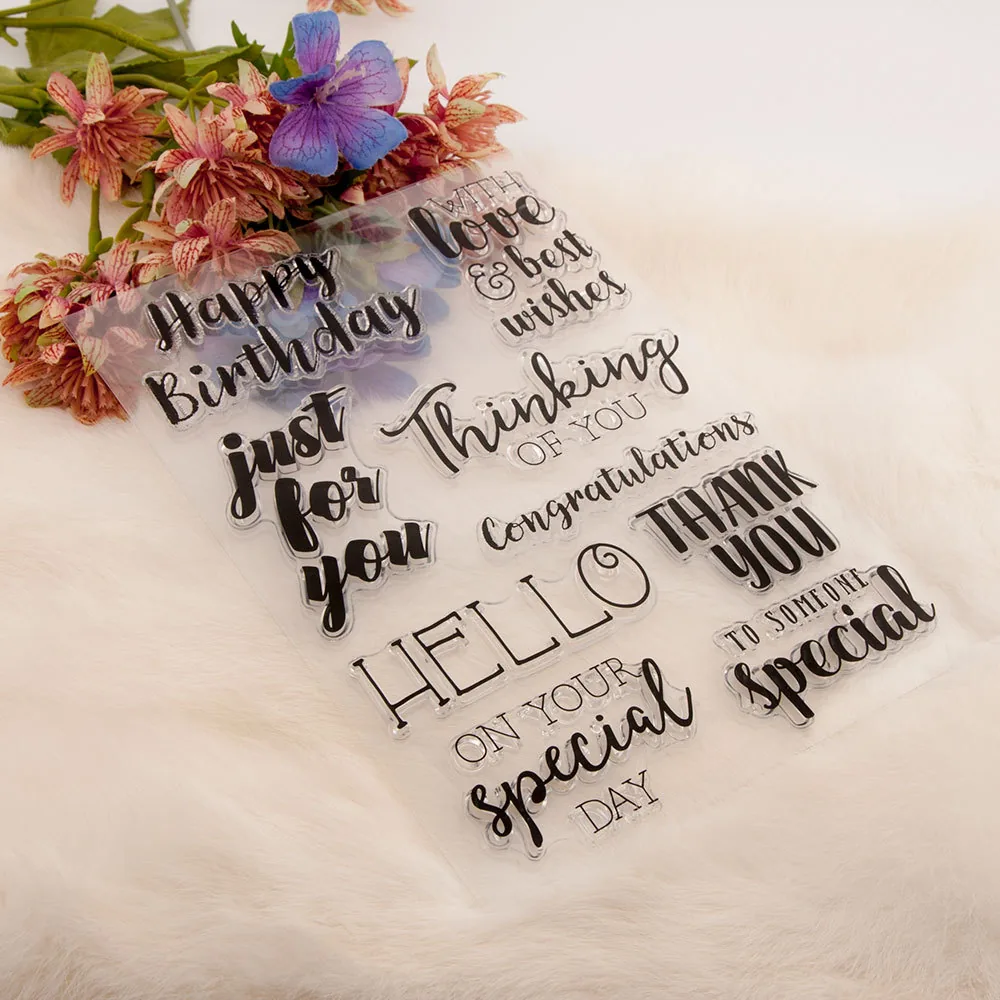 Happy
Birthday
WITH
love
& best
wishes
just
for
you
Thinking
OF YOU
Congratulations
THANK
YOU
HELLO
TO SOMEONE
special
ON YOUR
special
DAY